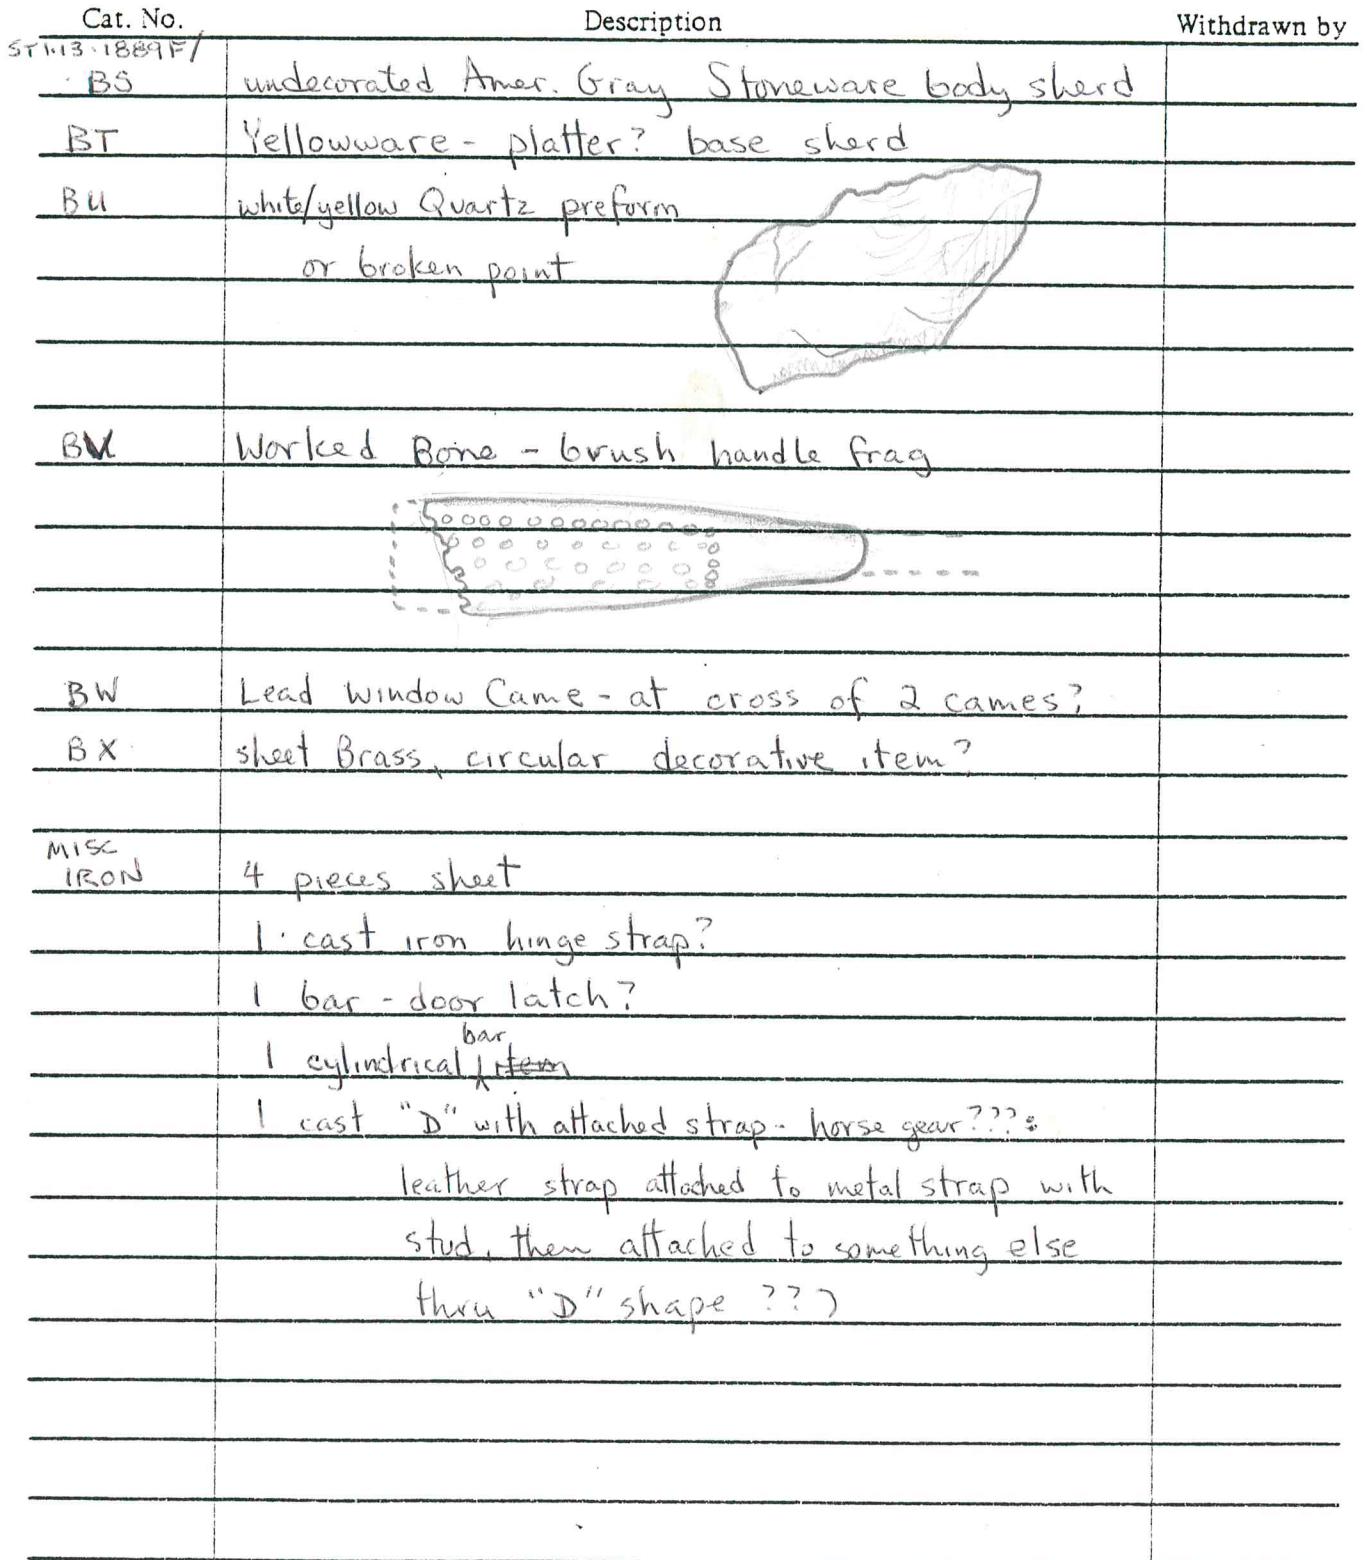 Cat. No. Description Withdrawn by
ST1·13·1889F/
BS undecorated Amer. Gray Stoneware body sherd
BT Yellowware - platter? base sherd
BU white/yellow Quartz preform
or broken point
BV Worked Bone - brush handle frag
BW Lead Window Came - at cross of 2 cames?
BX sheet Brass, circular decorative item?
MISC
IRON 4 pieces sheet
1 cast iron hinge strap?
1 bar - door latch?
bar
1 cylindrical item
1 cast "D" with attached strap - horse gear???:
leather strap attached to metal strap with
stud, then attached to something else
thru "D" shape ??)